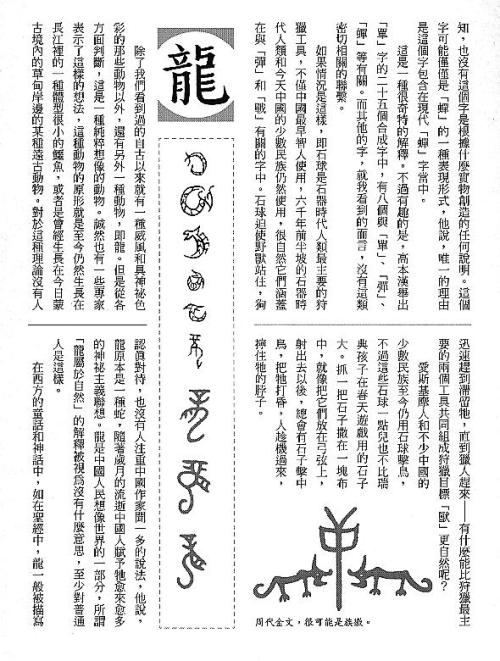 知，也沒有這個字是根據什麼實物創造的任何說明。這個
字可能僅僅是「蟬」的一種表現形式，他說，唯一的理由
是這個字包含在現代「蟬」字當中。
這是一種很奇特的解釋。不過有趣的是，高本漢舉出
「單」字的二十五個合成字中，有八個與「單」、「彈」、
「蟬」等有關。而其他的字，就我看到的而言，沒有這類
密切相關的聯繫。
如果情況是這樣，即石球是石器時代人類最主要的狩
獵工具，不僅中國最早智人使用，六千年前半坡的石器時
代人類和今天中國的少數民族仍然使用，很自然它們涵蓋
在與「彈」和「戰」有關的字中。石球迫使野獸站住，狗
迅速趕到滯留牠，直到獵人趕來——有什麼能比狩獵最主
要的兩個工具共同組成狩獵目標「獸」更自然呢？
愛斯基摩人和不少中國的
少數民族至今仍用石球擊鳥，
不過這些石球一點兒也不比瑞
典孩子在春天遊戲用的石子
大。抓一把石子撒在一塊布
中，就像把它們放在弓弦上，
射出去以後，總會有石子擊中
鳥，把牠打昏，人趁機過來，
擰住牠的脖子。
周代金文，很可能是族徽。
龍
除了我們看到過的自古以來就有一種威風和具神祕色
彩的那些動物以外，還有另外一種動物，即龍。但是從各
方面判斷，這是一種純粹想像的動物。誠然也有一些專家
表示了這樣的想法，這種動物的原形就是至今仍然生長在
長江裡的一種體型很小的鱷魚，或者是曾經生長在今日蒙
古境內的草甸岸邊的某種遠古動物。對於這種理論沒有人
認真對待，也沒有人注重中國作家聞一多的說法，他說，
龍原本是一種蛇，隨著歲月的流逝中國人賦予牠愈來愈多
的神祕主義聯想。龍是中國人民想像世界的一部分，所謂
「龍屬於自然」的解釋被視為沒有什麼意思，至少對普通
人是這樣。
在西方的童話和神話中，如在聖經中，龍一般被描寫